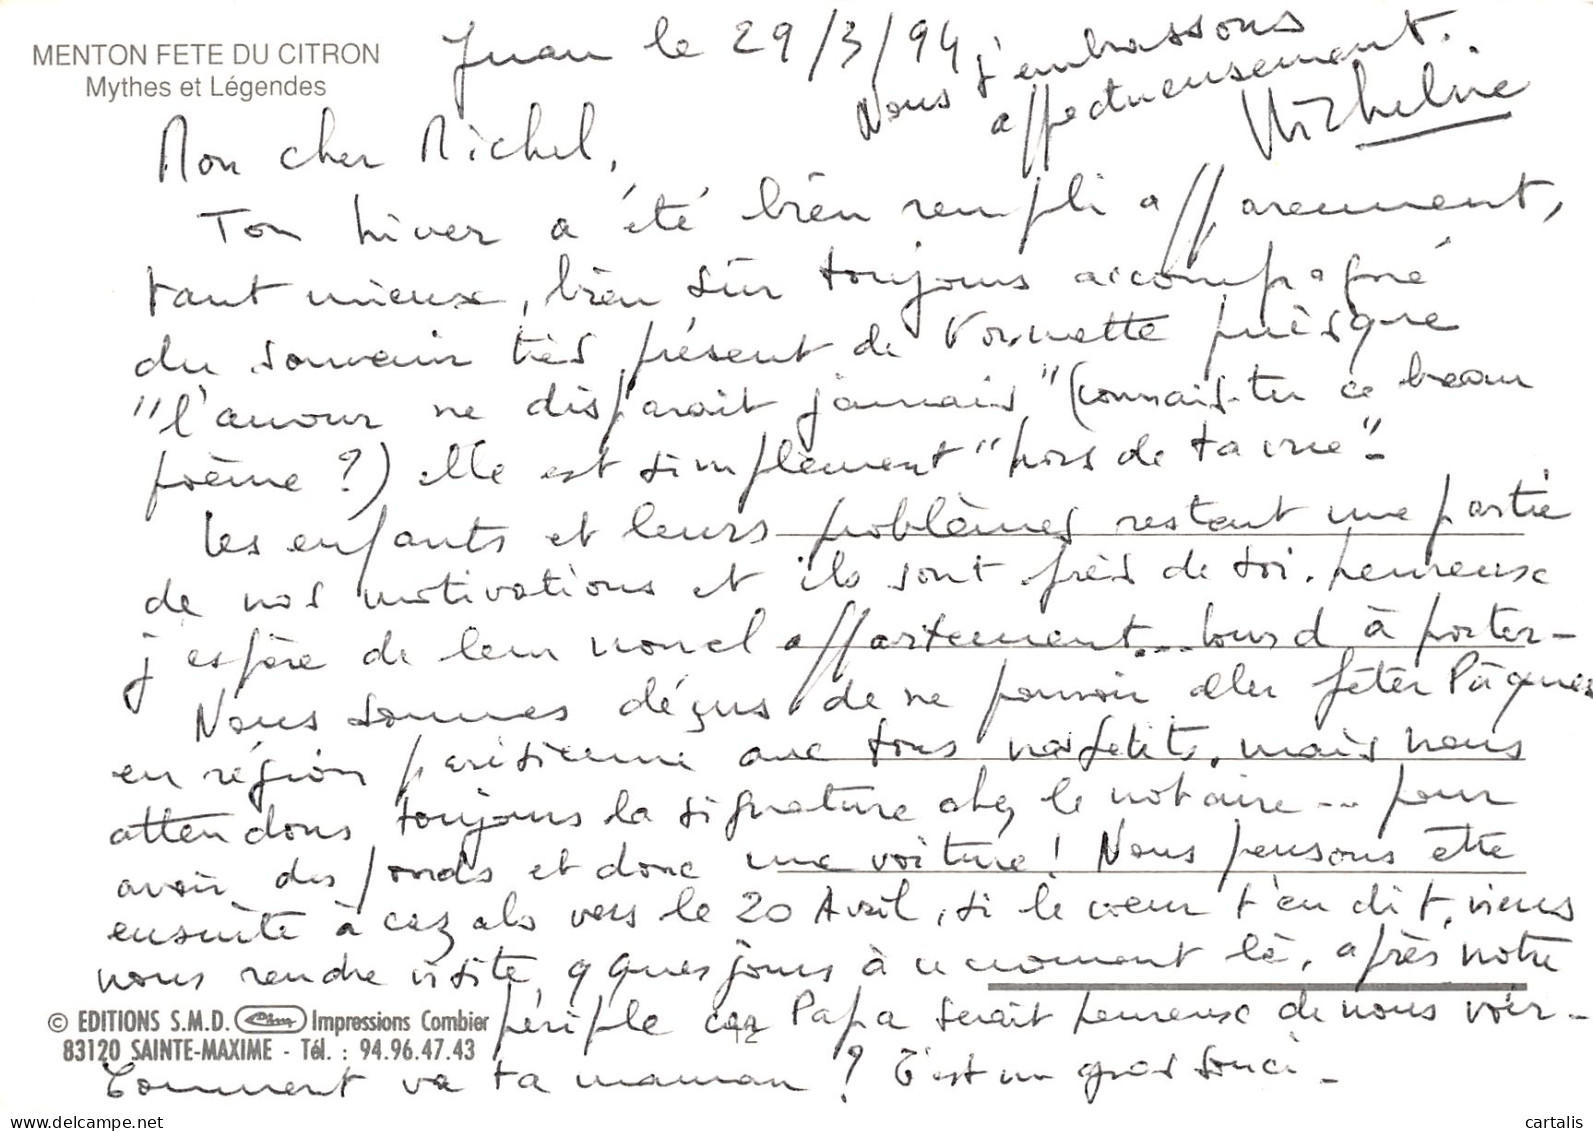 MENTON FETE DU CITRON
Mythes et Légendes
Juan le 29/3/94
Nous t'embrassons
affectueusement.
Micheline
Mon cher Michel,
Ton hiver a été bien rempli apparemment,
tant mieux, bien sûr toujours accompagné
du souvenir très présent de puisque
"l'amour ne disparait jamais" (connais-tu ce beau
poème ?) elle est simplement "hors de ta vue" -
Les enfants et leurs problèmes restent une partie
de nos motivations et ils sont près de toi. heureux
j'espère de leur nouvel appartement... lourd à porter -
Nous sommes déçus de ne pouvoir aller fêter Pâques
en région parisienne avec tous nos petits, mais nous
attendons toujours la signature chez le notaire... pour
avoir des fonds et donc une voiture ! Nous pensons être
ensuite à Cazals vers le 20 Avril, si le coeur t'en dit, viens
nous rendre visite, qques jours à ce moment là, après notre
périple car Papa serait heureux de nous voir -
Comment va ta maman ? C'est un gros souci -
© EDITIONS S.M.D. Impressions Combier
83120 SAINTE-MAXIME - Tél. : 94.96.47.43
12
www.delcampe.net
cartalis